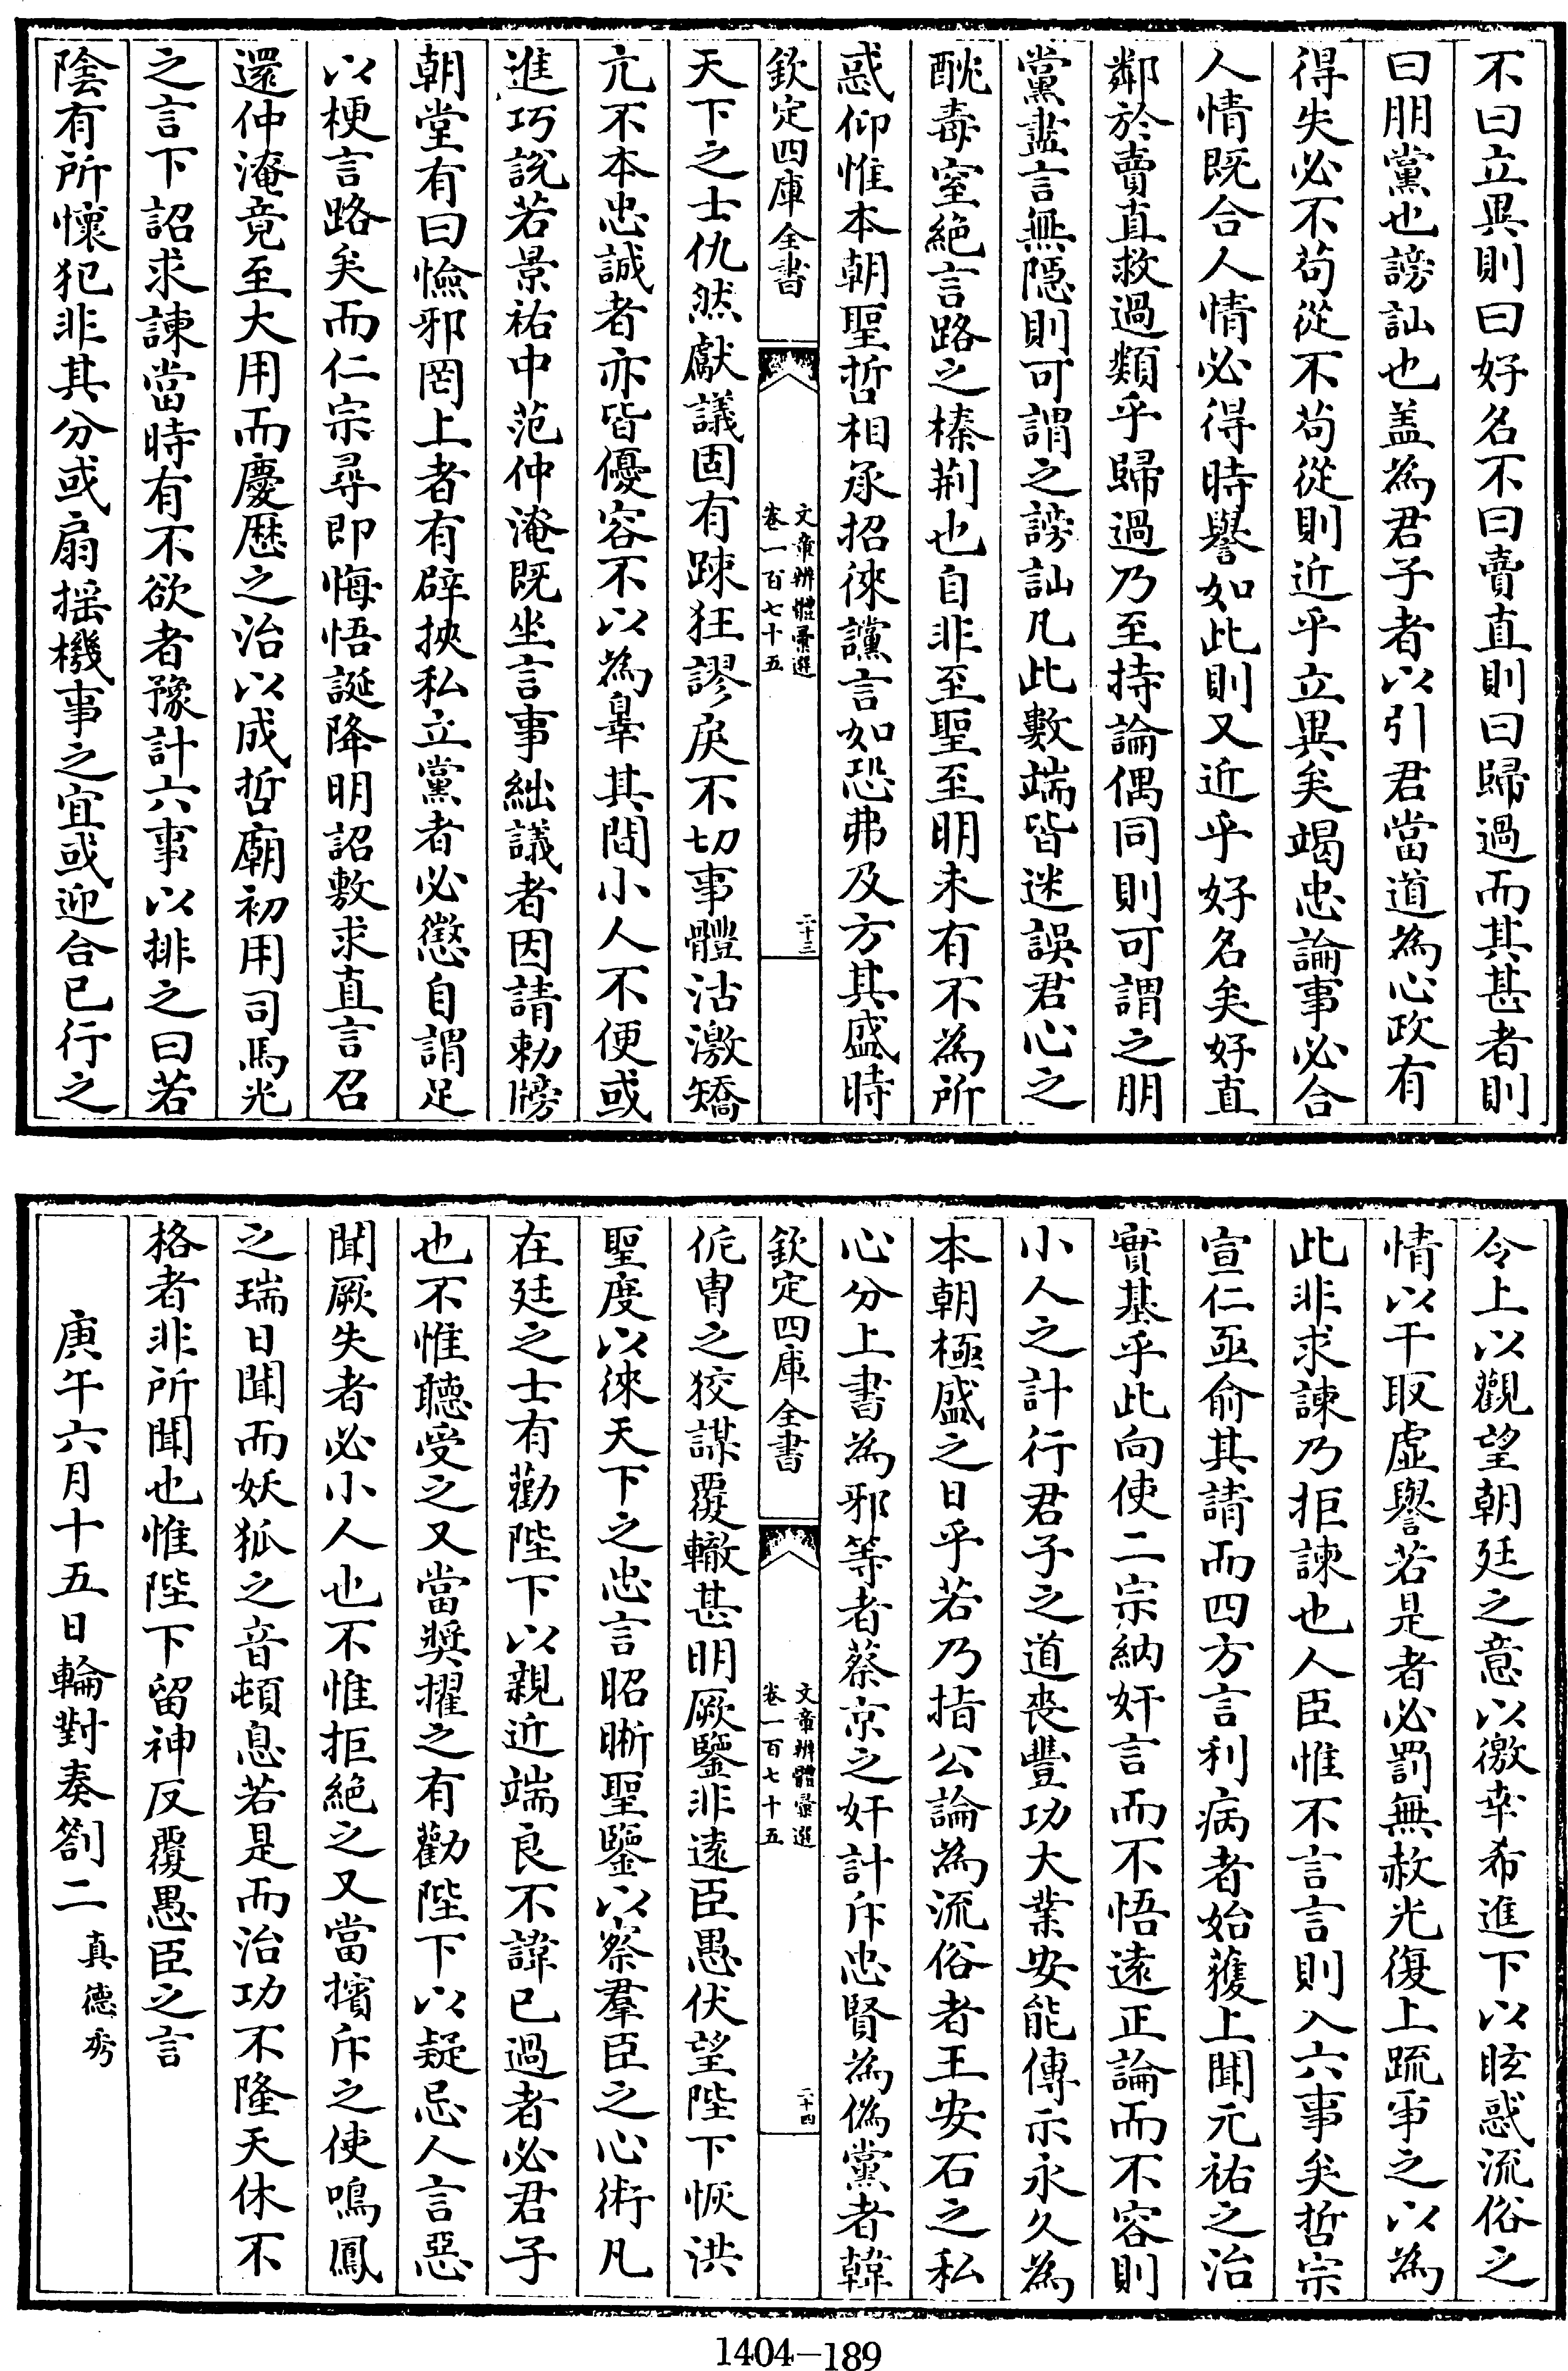 不曰立異則曰好名不曰賣直則曰歸過而其甚者則
曰朋黨也謗訕也盖為君子者以引君當道為心政有
得失必不苟從不苟從則近乎立異矣竭忠論事必合
人情既合人情必得時譽如此則又近乎好名矣好直
鄰於賣直救過類乎歸過乃至持論偶同則可謂之朋
黨盡言無隠則可謂之謗訕凡此數端皆迷誤君心之
酖毒窒絕言路之榛荆也自非至聖至明未有不為所
惑仰惟本朝聖哲相承招徠讜言如恐弗及方其盛時
欽定四庫全書
文章辨體彚選
卷一百七十五
二十三
天下之士仇然獻議固有踈狂謬戾不切事體沽激矯
亢不本忠誠者亦皆優容不以為辠其間小人不便或
進巧説若景祐中范仲淹既坐言事絀議者因請勅牓
朝堂有曰憸邪罔上者有辟挾私立黨者必懲自謂足
以梗言路矣而仁宗尋即悔悟誕降明詔敷求直言召
還仲淹竟至大用而慶歴之治以成哲廟初用司馬光
之言下詔求諫當時有不欲者豫計六事以排之曰若
陰有所懷犯非其分或扇揺機事之宜或迎合已行之
令上以觀望朝廷之意以徼幸希進下以眩惑流俗之
情以干取虚譽若是者必罰無赦光復上疏爭之以為
此非求諫乃拒諫也人臣惟不言言則入六事矣哲宗
宣仁亟俞其請而四方言利病者始獲上聞元祐之治
實基乎此向使二宗納奸言而不悟逺正論而不容則
小人之計行君子之道喪豐功大業安能傳示永久為
本朝極盛之日乎若乃指公論為流俗者王安石之私
心分上書為邪等者蔡京之奸計斥忠賢為偽黨者韓
欽定四庫全書
文章辨體彚選
卷一百七十五
二十四
侂胄之狡謀覆轍甚明厥鑒非逺臣愚伏望陛下恢洪
聖度以徠天下之忠言昭晣聖鑒以察羣臣之心術凡
在廷之士有勸陛下以親近端良不諱已過者必君子
也不惟聽受之又當奬擢之有勸陛下以疑忌人言惡
聞厥失者必小人也不惟拒絶之又當擯斥之使鳴鳳
之瑞日聞而妖狐之音頓息若是而治功不隆天休不
格者非所聞也惟陛下留神反覆愚臣之言
庚午六月十五日輪對奏劄二 真德秀
1404-189